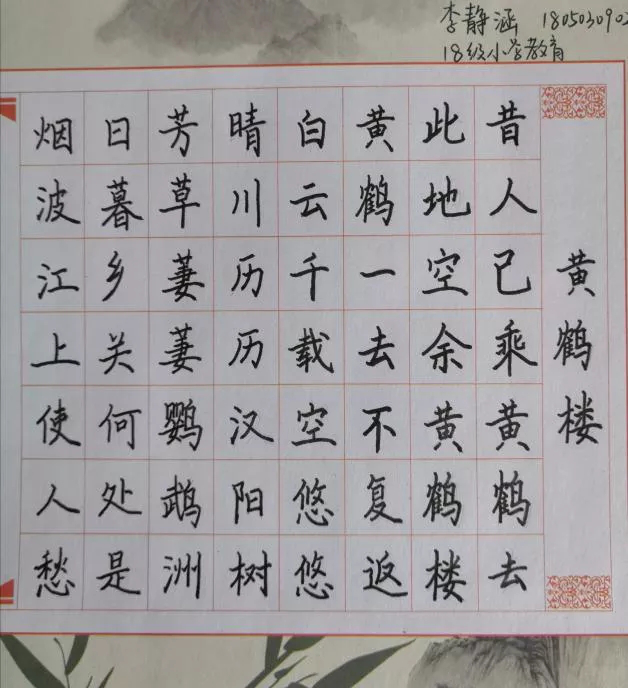 李静涵 180503090
18级小学教育
黄鹤楼
昔人已乘黄鹤去
此地空余黄鹤楼
黄鹤一去不复返
白云千载空悠悠
晴川历历汉阳树
芳草萋萋鹦鹉洲
日暮乡关何处是
烟波江上使人愁